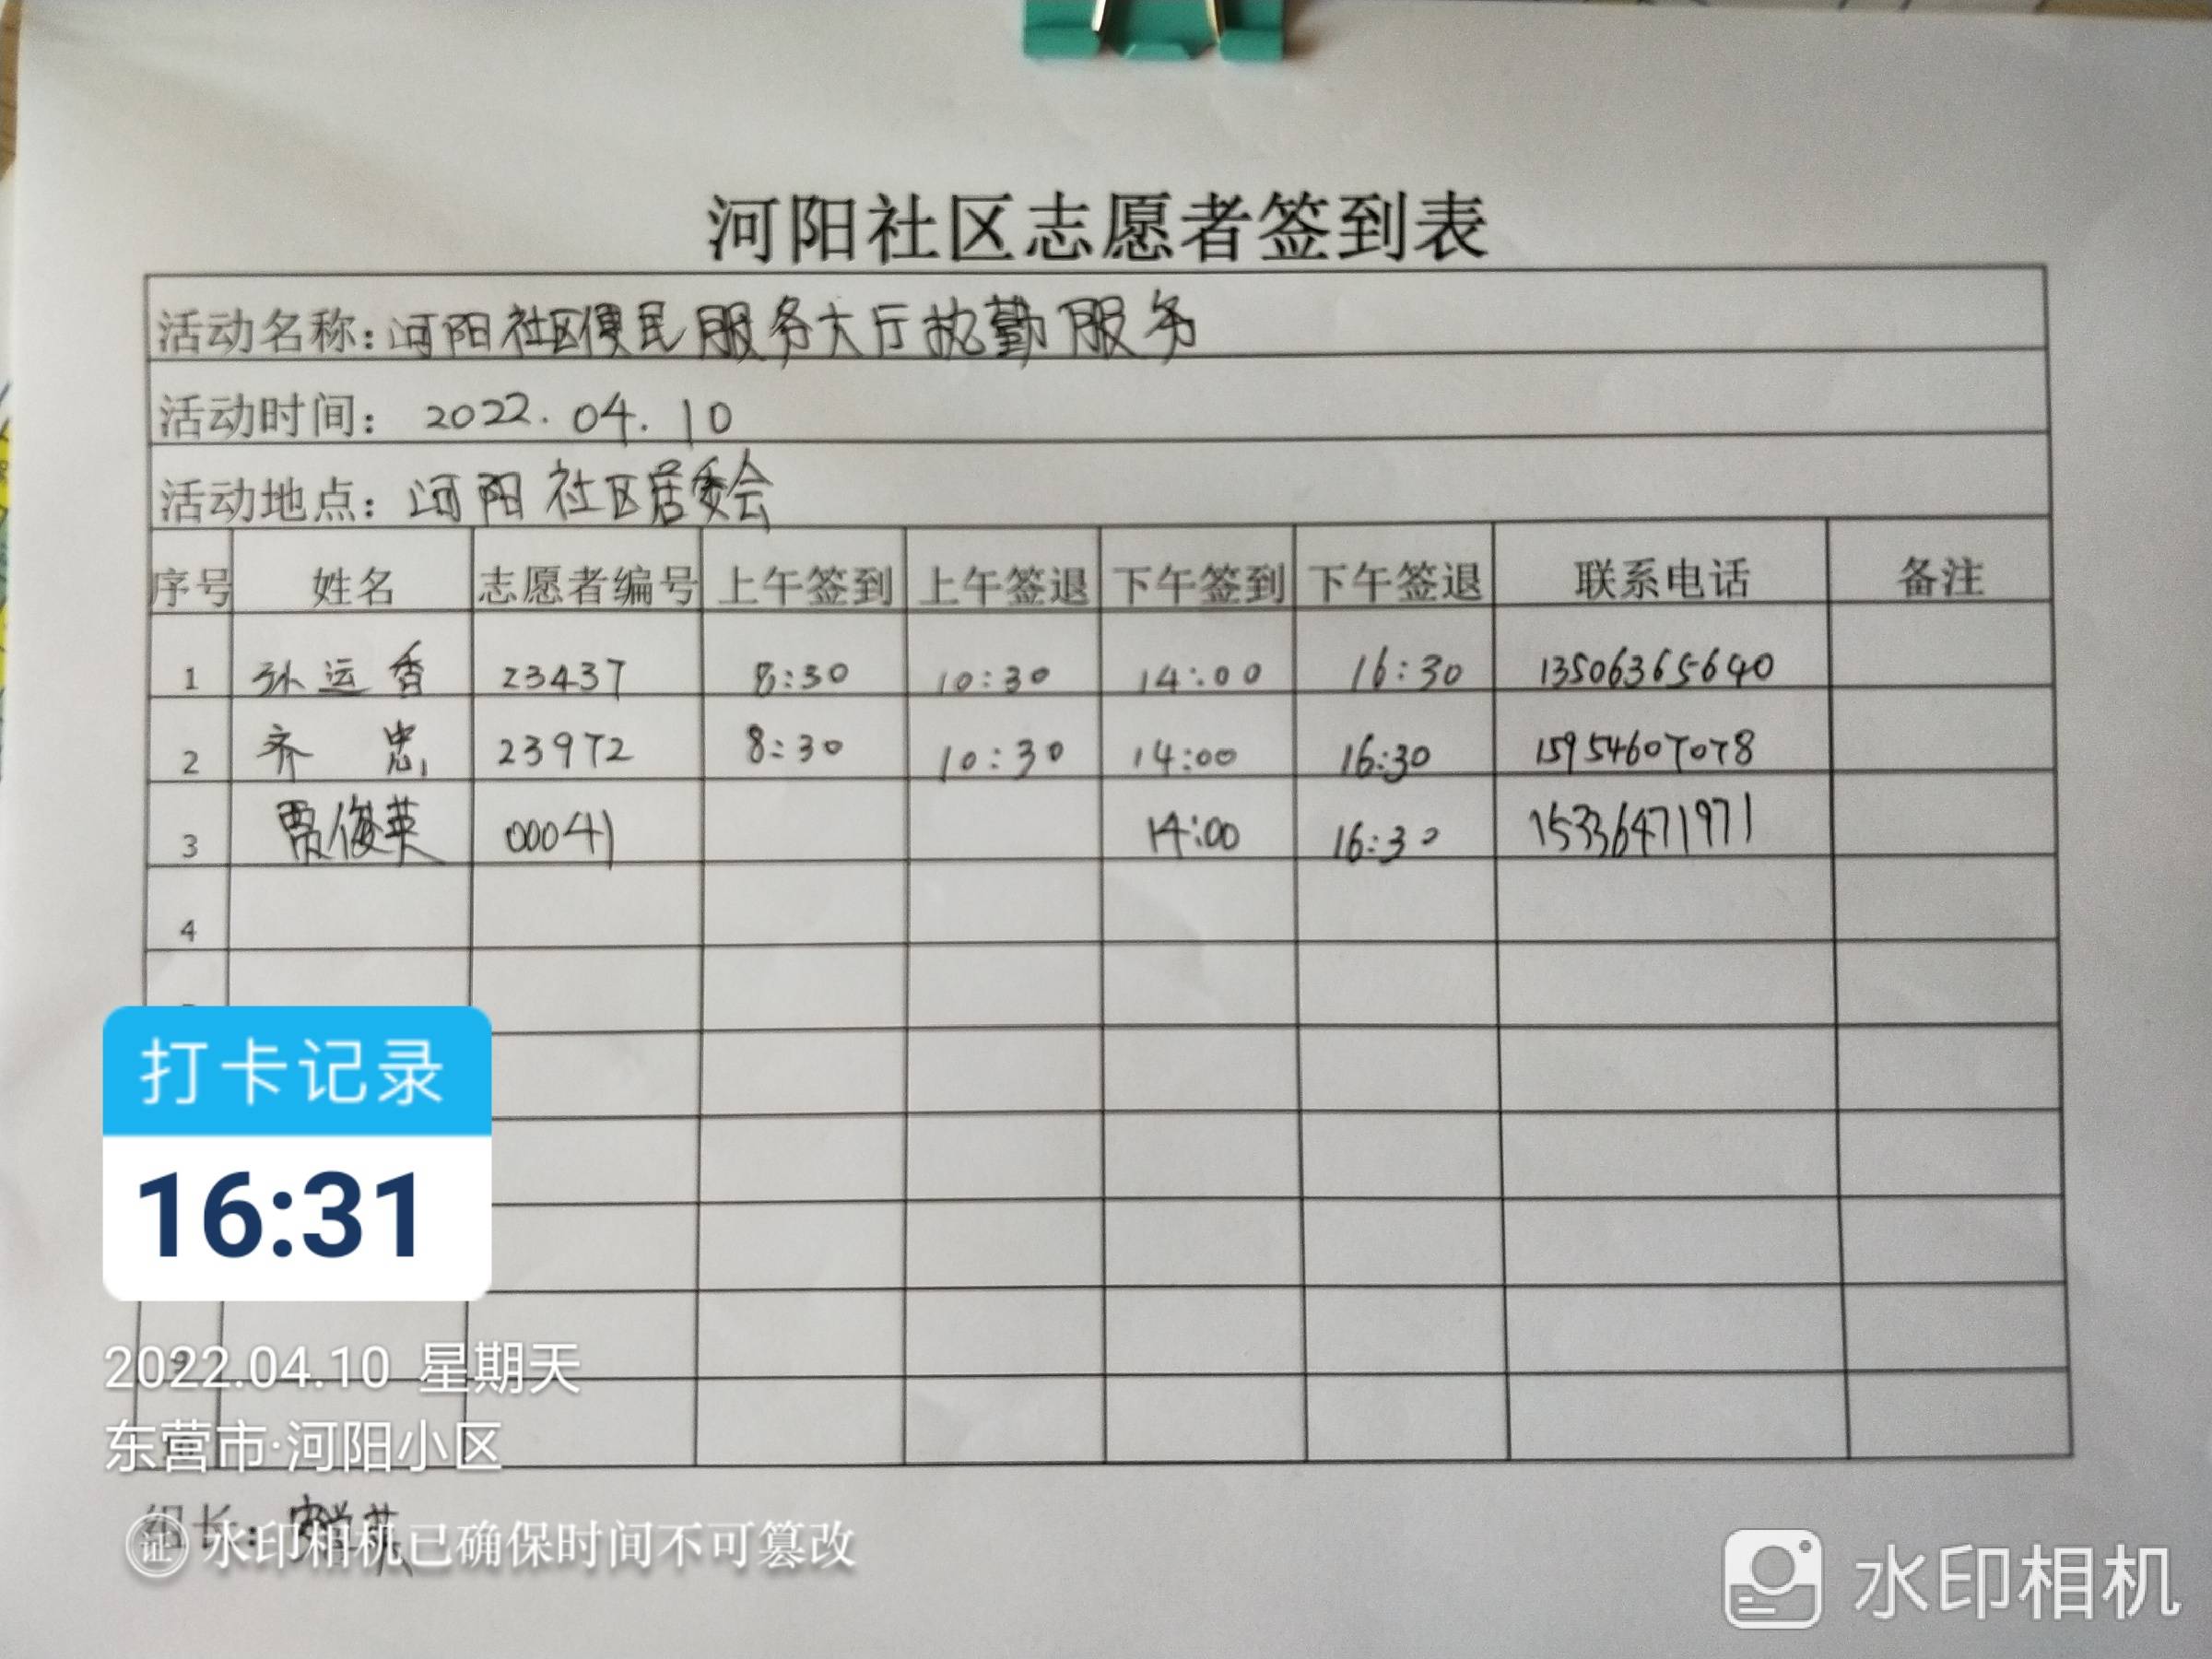 河阳社区志愿者签到表
活动名称：河阳社区便民服务大厅执勤服务
活动时间： 2022.04.10
活动地点：河阳社区居委会
序号 姓名 志愿者编号 上午签到 上午签退 下午签到 下午签退 联系电话 备注
1 孙运香 23437 8:30 10:30 14:00 16:30 13506365640
2 齐忠 23972 8:30 10:30 14:00 16:30 15954607078
3 贾俊英 00041 14:00 16:30 15336471971
4
打卡记录
16:31
9
2022.04.10 星期天
东营市·河阳小区
组长：
证 水印相机已确保时间不可篡改
水印相机